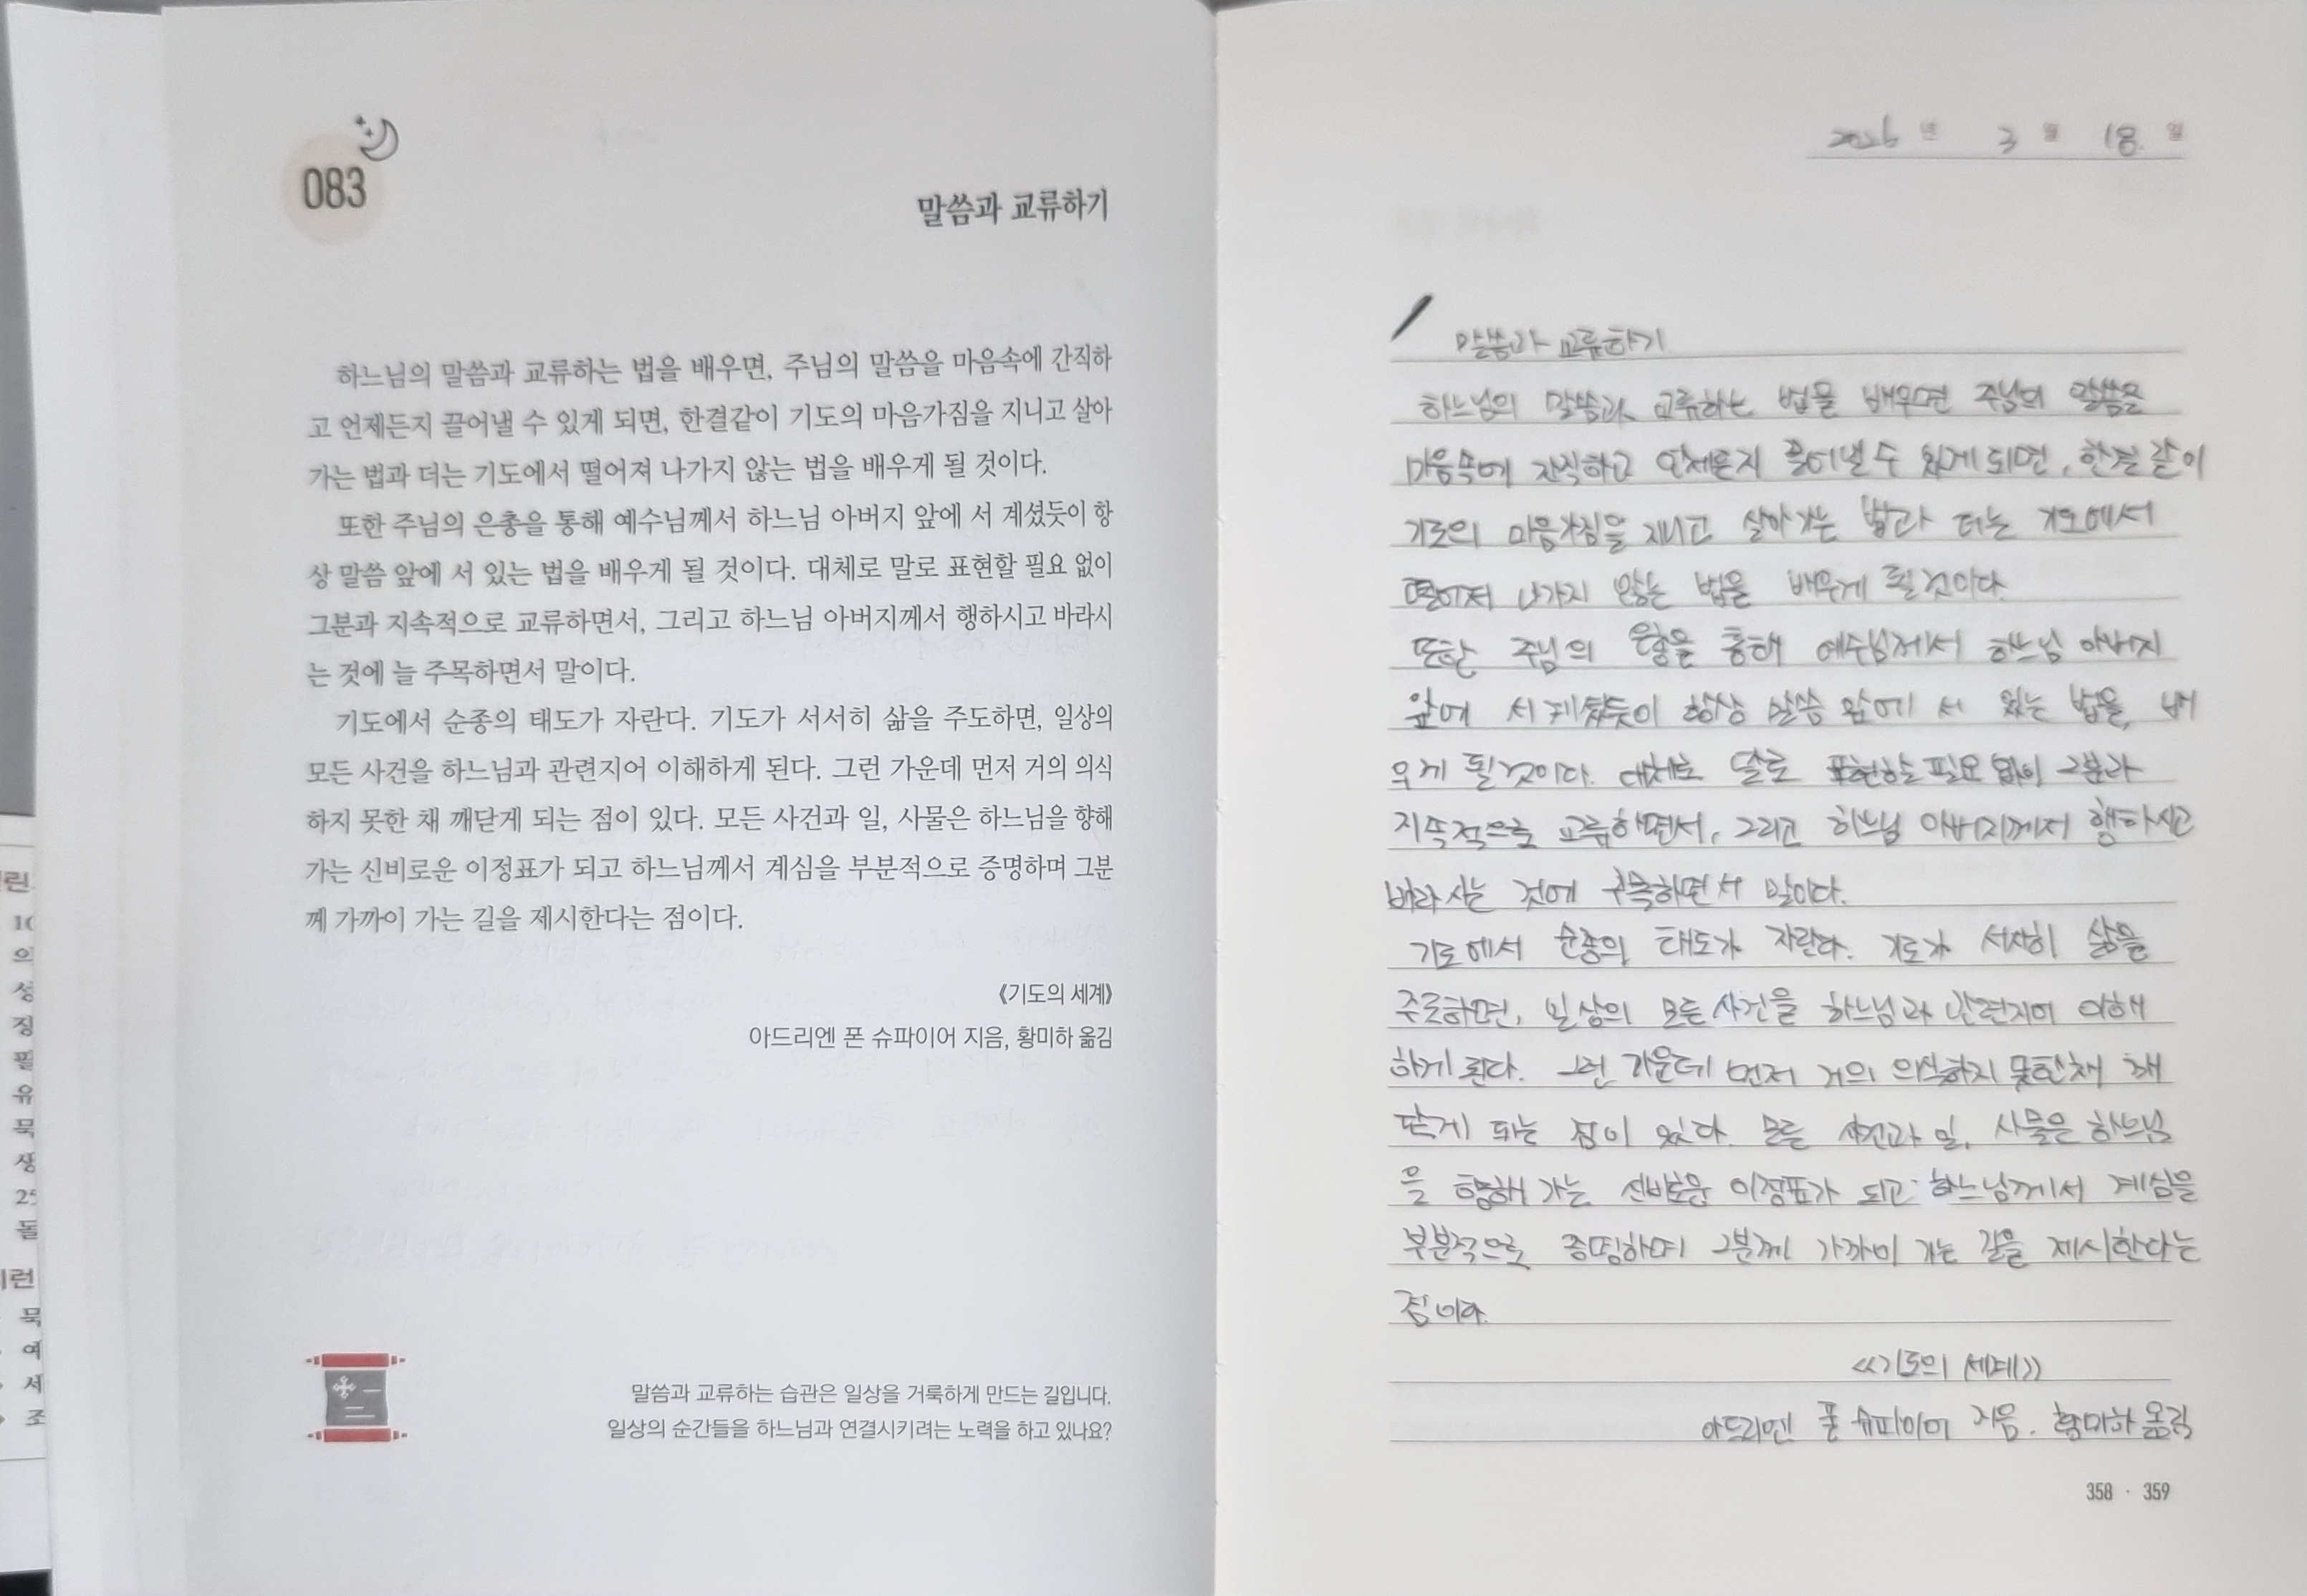 083
말씀과 교류하기
하느님의 말씀과 교류하는 법을 배우면, 주님의 말씀을 마음속에 간직하
고 언제든지 끌어낼 수 있게 되면, 한결같이 기도의 마음가짐을 지니고 살아
가는 법과 더는 기도에서 떨어져 나가지 않는 법을 배우게 될 것이다.
또한 주님의 은총을 통해 예수님께서 하느님 아버지 앞에 서 계셨듯이 항
상 말씀 앞에 서 있는 법을 배우게 될 것이다. 대체로 말로 표현할 필요 없이
그분과 지속적으로 교류하면서, 그리고 하느님 아버지께서 행하시고 바라시
는 것에 늘 주목하면서 말이다.
기도에서 순종의 태도가 자란다. 기도가 서서히 삶을 주도하면, 일상의
모든 사건을 하느님과 관련지어 이해하게 된다. 그런 가운데 먼저 거의 의식
하지 못한 채 깨닫게 되는 점이 있다. 모든 사건과 일, 사물은 하느님을 향해
가는 신비로운 이정표가 되고 하느님께서 계심을 부분적으로 증명하며 그분
께 가까이 가는 길을 제시한다는 점이다.
《기도의 세계》
아드리엔 폰 슈파이어 지음, 황미하 옮김
말씀과 교류하는 습관은 일상을 거룩하게 만드는 길입니다.
일상의 순간들을 하느님과 연결시키려는 노력을 하고 있나요?
2026 년 3 월 18. 일
말씀과 교류하기
하느님의 말씀과 교류하는 법을 배우면 주님의 말씀을
마음속에 간직하고 언제든지 끌어낼 수 있게 되면, 한결같이
기도의 마음가짐을 지니고 살아가는 법과 더는 기도에서
떨어져 나가지 않는 법을 배우게 될 것이다.
또한 주님의 은총을 통해 예수님께서 하느님 아버지
앞에 서 계셨듯이 항상 말씀 앞에 서 있는 법을, 배
우게 될 것이다. 대체로 말로 표현할 필요 없이 그분과
지속적으로 교류하면서, 그리고 하느님 아버지께서 행하시고
바라시는 것에 주목하면서 말이다.
기도에서 순종의 태도가 자란다. 기도가 서서히 삶을
주도하면, 일상의 모든 사건을 하느님과 관련지어 이해
하게 된다. 그런 가운데 먼저 거의 의식하지 못한채 깨
닫게 되는 점이 있다. 모든 사건과 일, 사물은 하느님
을 향해 가는 신비로운 이정표가 되고 하느님께서 계심을
부분적으로 증명하며 그분께 가까이 가는 길을 제시한다는
점이다.
《기도의 세계》
아드리엔 폰 슈파이어 지음. 황미하 옮김
358 · 359